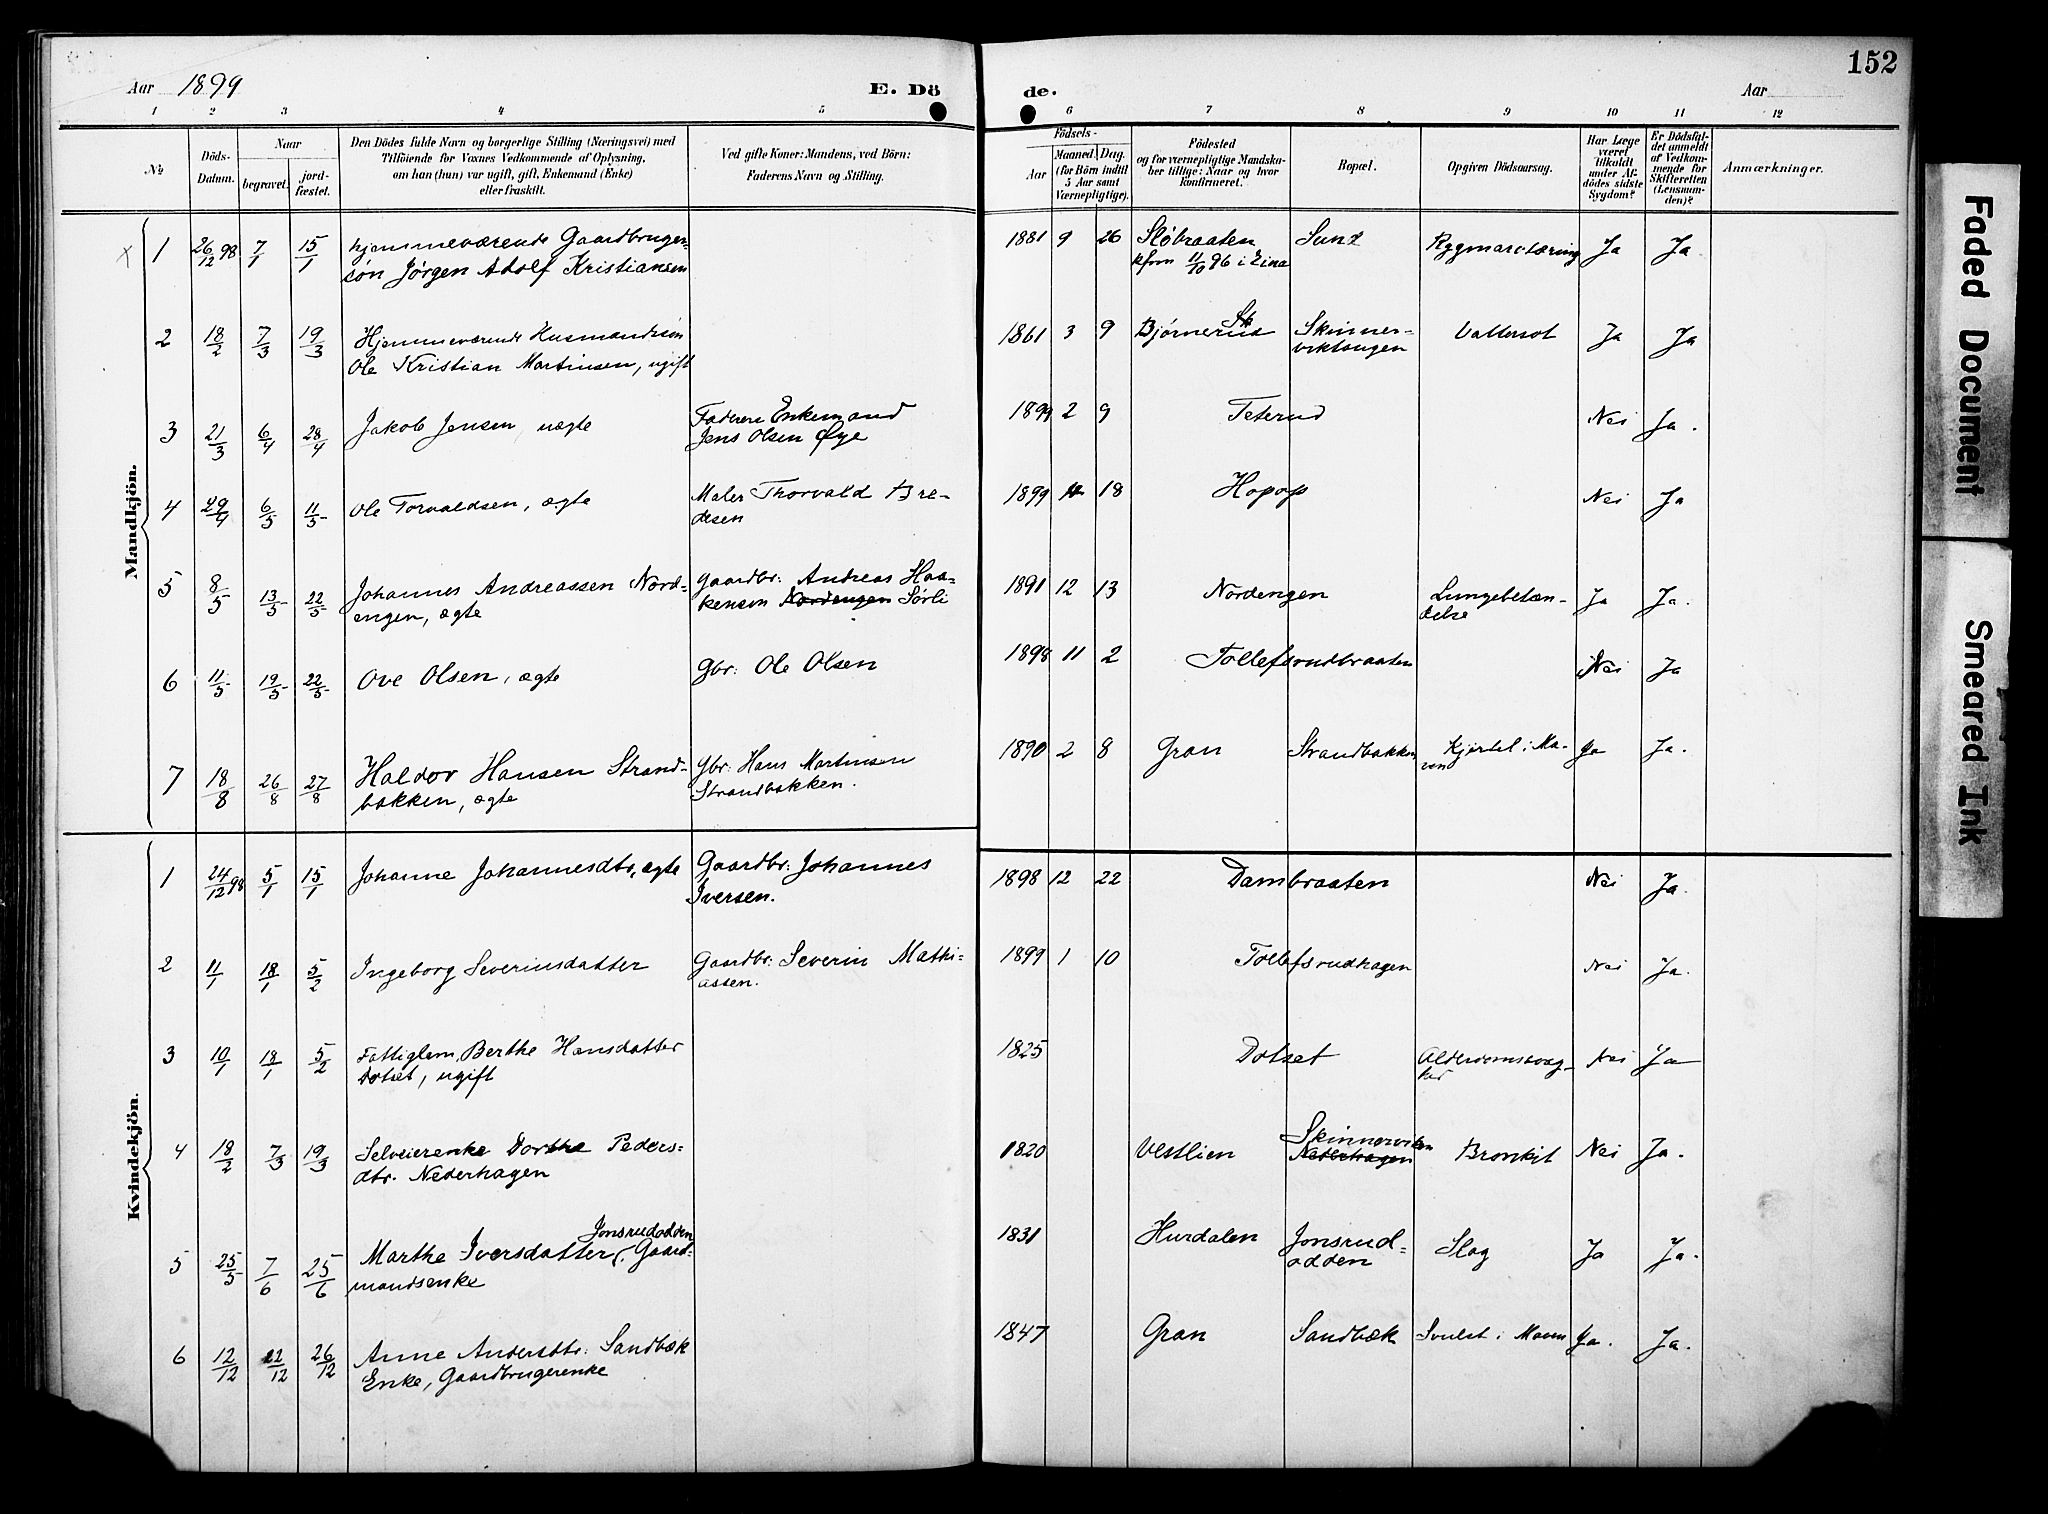 152
Aar 1899
E. Dö
de.
Aar
1 2 3 4 5 6 7 8 9 10 11 12
№
Döds-
Datum.
Naar
begravet.
jord-
fæstet.
Den Dödes fulde Navn og borgerlige Stilling (Næringsvei) med
Tilföiende for Voxnes Vedkommende af Oplysning,
om han (hun) var ugift, gift, Enkemand (Enke)
eller fraskilt.
Ved gifte Koner: Mandens, ved Börn:
Faderens Navn og Stilling.
Födsels-
Aar
Maaned.
Dag.
(for Börn indtil
5 Aar samt
Værnepligtige).
Födested
og for værnepligtige Mandska-
ber tillige: Naar og hvor
konfirmeret.
Bopæl.
Opgiven Dödsaarsag.
Har Læge
været
tilkaldt
under Af-
dödes sidste
Sygdom?
Er Dödsfal-
det anmeldt
af Vedkom-
mende for
Skifteretten
(Lensman-
den)?
Anmærkninger.
Mandkjön.
1 26/12 98 7/1 15/1 hjemmeværende Gaardbruger-
søn Jørgen Adolf Kristiansen
1881 9 26 Sløbraaten Sund Rygmarvtæring Ja Ja.
kfrm 11/10 96 i Eina
2 18/2 7/3 19/3 Hjemmeværende Husmandssøn
Ole Kristian Martinsen, ugift
1861 3 9 Bjørnerud Skinner-
viktangen Vattersot Ja Ja
3 21/3 6/4 28/4 Jakob Jensen, uægte
Faderen Enkemand
Jens Olsen Øye
1899 2 9 Teterud Nei Ja.
4 29/4 6/5 11/5 Ole Torvaldsen, ægte
Maler Thorvald Bre-
desen
1899 18 Hopop Nei Ja
5 8/5 13/5 22/5 Johannes Andreassen Nord-
engen, ægte
Gaardbr: Andreas Haa-
kensen Nordengen Sørli
1891 12 13 Nordengen Lungebetæn-
delse Ja Ja.
6 11/5 19/5 22/5 Ove Olsen, ægte
Gbr: Ole Olsen
1898 11 2 Tollefsrudbraaten Nei Ja
7 18/8 26/8 27/8 Haldor Hansen Strand-
bakken, ægte
Gbr: Hans Martinsen
Strandbakken.
1890 2 8 Gran Strandbakken Kjertel i Ma-
ven Ja Ja.
Kvindekjön.
1 24/12 98 5/1 15/1 Johanne Johannesdtr, ægte
Gaardbr: Johannes
Iversen.
1898 12 22 Dambraaten Nei Ja.
2 11/1 18/1 5/2 Ingeborg Severinsdatter
Gaardbr: Severin Mathi-
assen.
1899 1 10 Tollefsrudhagen Nei Ja.
3 10/1 18/1 5/2 Fattiglem, Berthe Hansdatter
Dotset, ugift
1825 Dotset Alderdomssvag-
hed Nei Ja
4 18/2 7/3 19/3 Selveierenke Dorthe Peders-
dtr. Nederhagen
1820 Vestlien Skinnerviken
Nederhagen Bronkit Nei Ja.
5 25/5 7/6 25/6 Marthe Iversdatter Jonsrudodden, Gaard-
mandsenke
1831 Hurdalen Jonsrud-
odden Slag Ja Ja.
6 12/12 22/12 26/12 Anne Andersdtr: Sandbæk
Enke, Gaardbrugerenke
1847 Gran Sandbæk Svulst i Maven Ja. Ja.
Faded Document
Smeared Ink